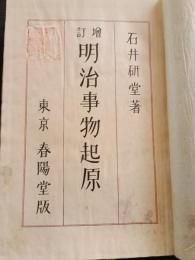 石井硏堂著
增訂 明治事物起原
東京 春陽堂版